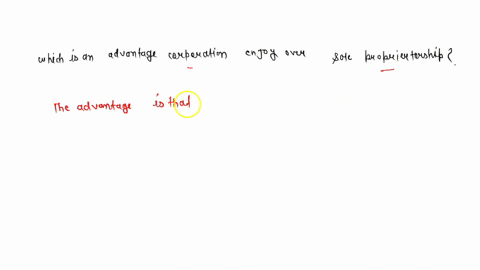 which is an advantage corporation enjoy over sole propriertorship?
The advantage is that